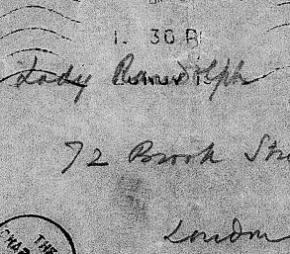 1. 30 P
Lady Randolph
72 Brook Str
London
THE
CHAR